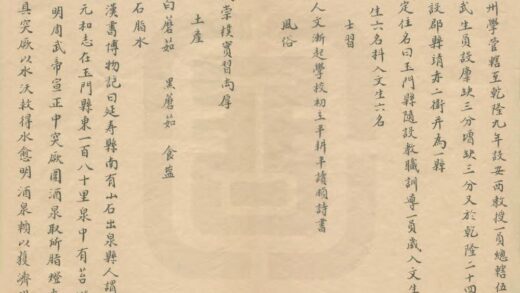 州學管轄至乾隆九年設安西教授一員總轄伍
武生員設廩缺三分增缺三分又於乾隆二十四
設郡縣靖赤二衛并為一縣
定住名曰玉門縣隨設教職訓導一員歲入文生
生六名科入文生六名
士習
人文漸起學校初立半耕半讀頗詩書
風俗
崇樸實習尚厚
土產
白蘑菇 黑蘑菇 食鹽
石脂水
漢書博物記曰延壽縣南有山石出泉縣人謂
元和志在玉門縣東一百八十里泉中有苔
明周武帝宣正中突厥圍酒泉取所脂燈
具突厥以水沃救得水愈明酒泉賴以獲濟